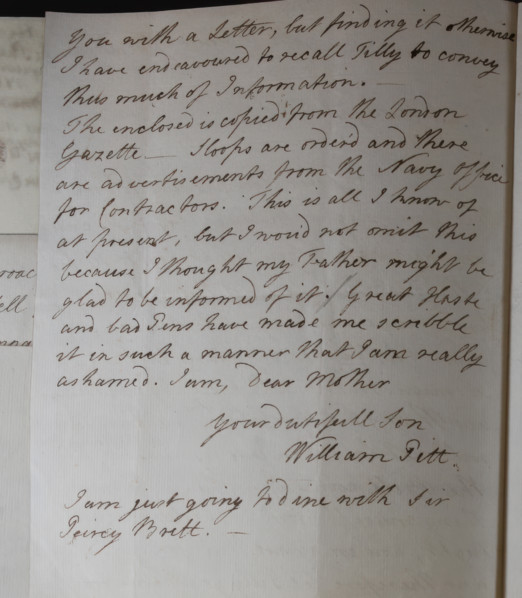 You with a Letter, but finding it otherwise
I have endeavoured to recall Tilly to convey
thus much of Information. —
The enclosed is copied from the London
Gazette — Sloops are orderd and there
are advertisements from the Navy Office
for Contractors. This is all I know of
at present, but I wou'd not omit this
because I thought my Father might be
glad to be informed of it. / Great Haste
and bad Pens have made me scribble
it in such a manner that I am really
ashamed. I am, Dear Mother
Your dutifull Son
William Pitt.
I am just going to dine with Sir
Peircy Brett. —